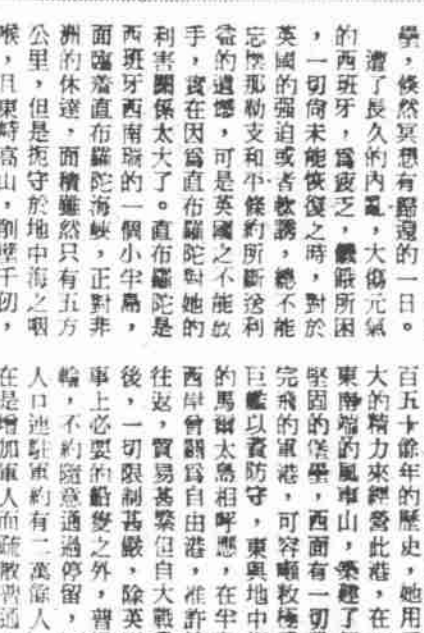 壘，倏然冥想有歸還的一日。
遭了長久的內亂，大傷元氣
的西班牙，爲疲乏，饑餓所困
，一切尙未能恢復之時，對於
英國的强迫或者軟誘，總不能
忘懷那勒支和平條約所斷送利
益的遺憾，可是英國之不能放
手，實在因爲直布羅陀對她的
利害關係太大了。直布羅陀是
西班牙西南端的一個小半島，
面臨着直布羅陀海峽，正對非
洲的休達，面積雖然只有五方
公里，但是扼守於地中海之咽
喉，且東峙高山，削壁千仞，
百五十餘年的歷史，她用
大的精力來經營此港，在
東南端的風車山，築起了
堅固的堡壘，西面有一切
完飛的軍港，可容噸數極
巨艦以資防守，東與地中
的馬爾太島相呼應，在半
西岸曾闢爲自由港，准許
往返，貿易甚繁但自大戰
後，一切限制甚嚴，除英
事上必要的船隻之外，普
輪，不約隨意通過停留，
人口連駐軍約有二萬餘人
在是增加軍人而疏散普通